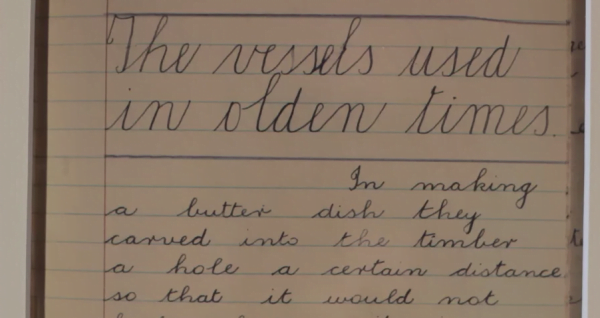 The vessels used
in olden times.
In making
a butter dish they
carved into the timber
a hole a certain distance
so that it would not